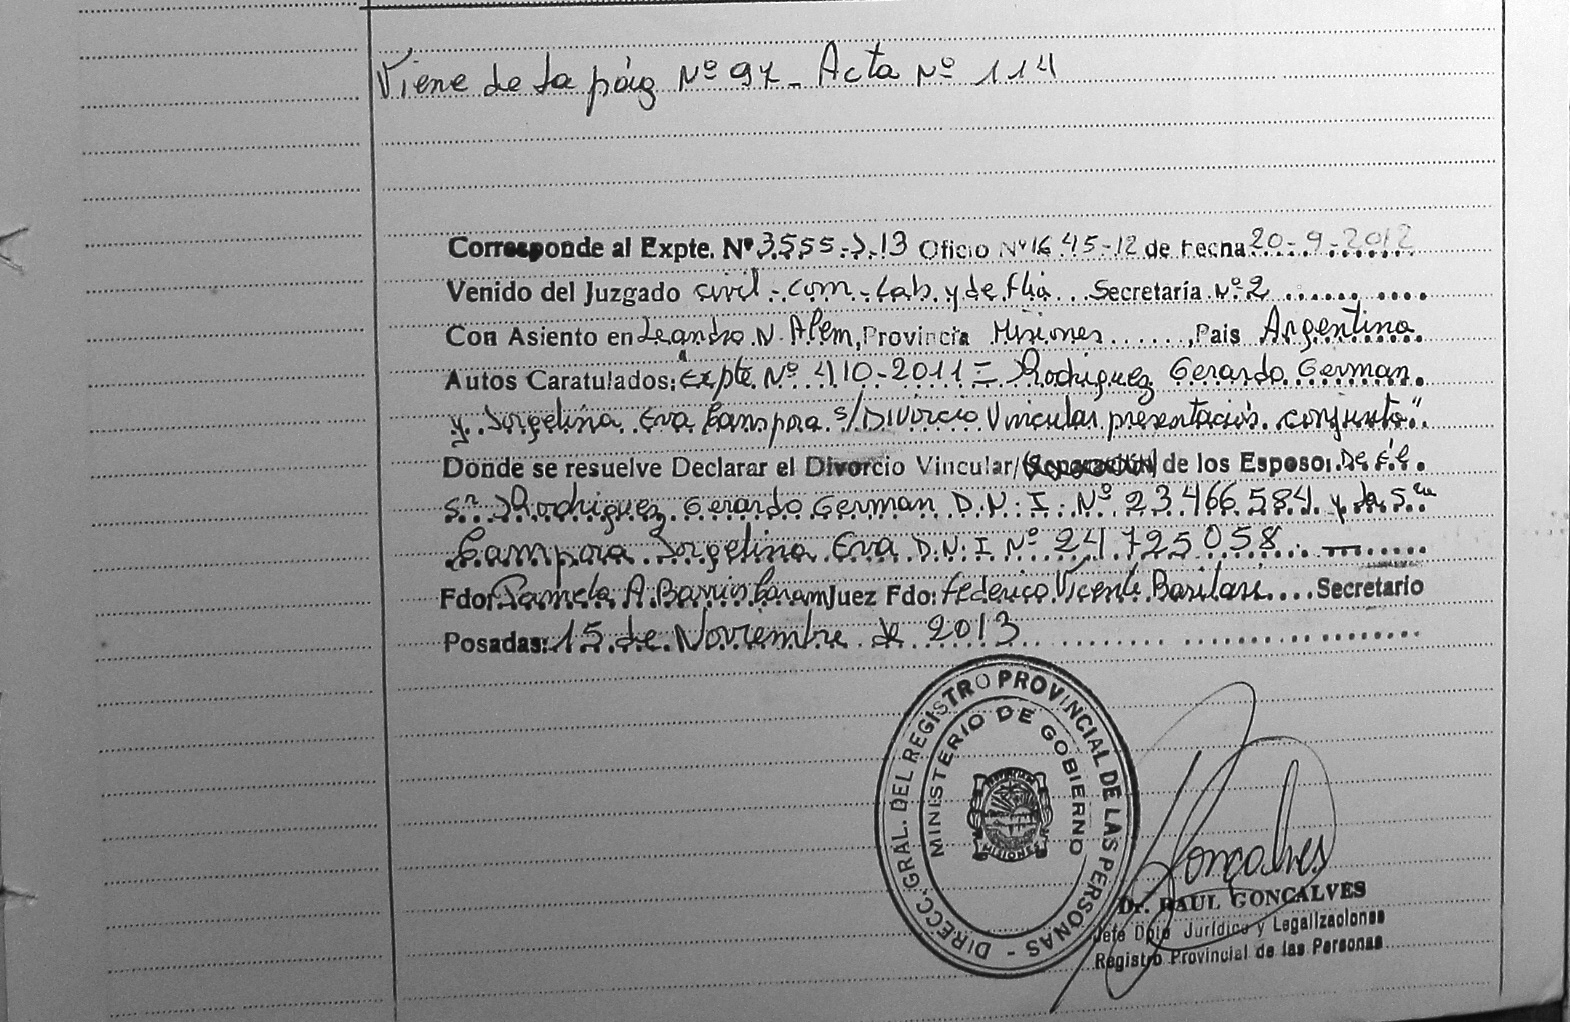 Viene de la pág Nº 97_ Acta Nº 114
Corresponde al Expte. Nº 3555-J-13 Oficio Nº 1645-12 de Fecha 20-9-2012
Venido del Juzgado civil-com-Lab y de flia Secretaría Nº 2
Con Asiento en Leandro N. Alem, Provincia Misiones, País Argentina
Autos Caratulados: Expte. Nº 410-2011 = Rodriguez Gerardo German
y Jorgelina Eva Campora s/ Divorcio Vincular presentación conjunta"
Donde se resuelve Declarar el Divorcio Vincular/ de los Esposos
Sr. Rodriguez Gerardo German D.N.I. Nº 23.466.584 y la Sra
Campora Jorgelina Eva D.N.I Nº 24.725.058
Fdo: Pamela A. Barrios Caram Juez Fdo: Federico Vicente Barilari Secretario
Posadas: 15 de Noviembre de 2013
DIRECC. GRAL. DEL REGISTRO PROVINCIAL DE LAS PERSONAS -
MINISTERIO DE GOBIERNO
MISIONES
Gonçalves
Dr. RAUL GONCALVES
Jefe Dpto Jurídico y Legalizaciones
Registro Provincial de las Personas